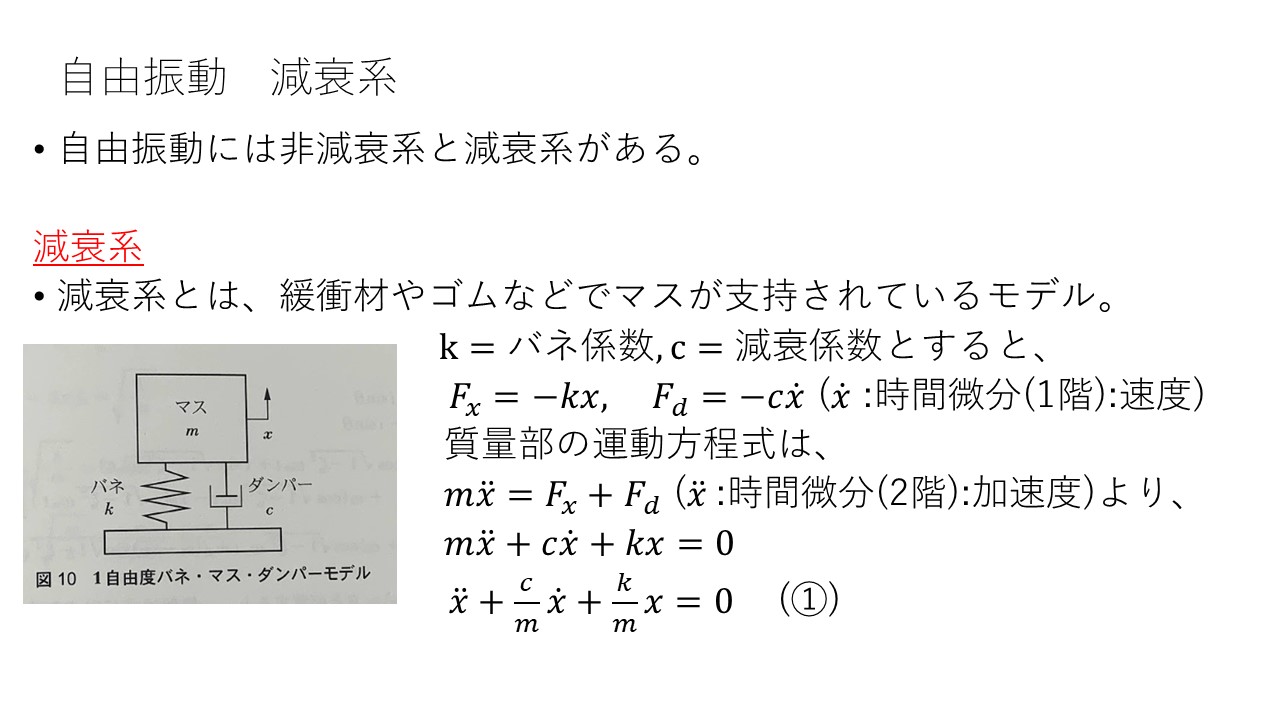 自由振動　減衰系
• 自由振動には非減衰系と減衰系がある。
減衰系
• 減衰系とは、緩衝材やゴムなどでマスが支持されているモデル。
k = バネ係数, c = 減衰係数とすると、
Fₓ = −kx,　F_d = −cẋ (ẋ :時間微分(1階):速度)
質量部の運動方程式は、
mẍ = Fₓ + F_d (ẍ :時間微分(2階):加速度)より、
mẍ + cẋ + kx = 0
ẍ + c/m ẋ + k/m x = 0　(①)
マス
m
x
バネ
k
ダンパー
c
図 10　1 自由度バネ・マス・ダンパーモデル